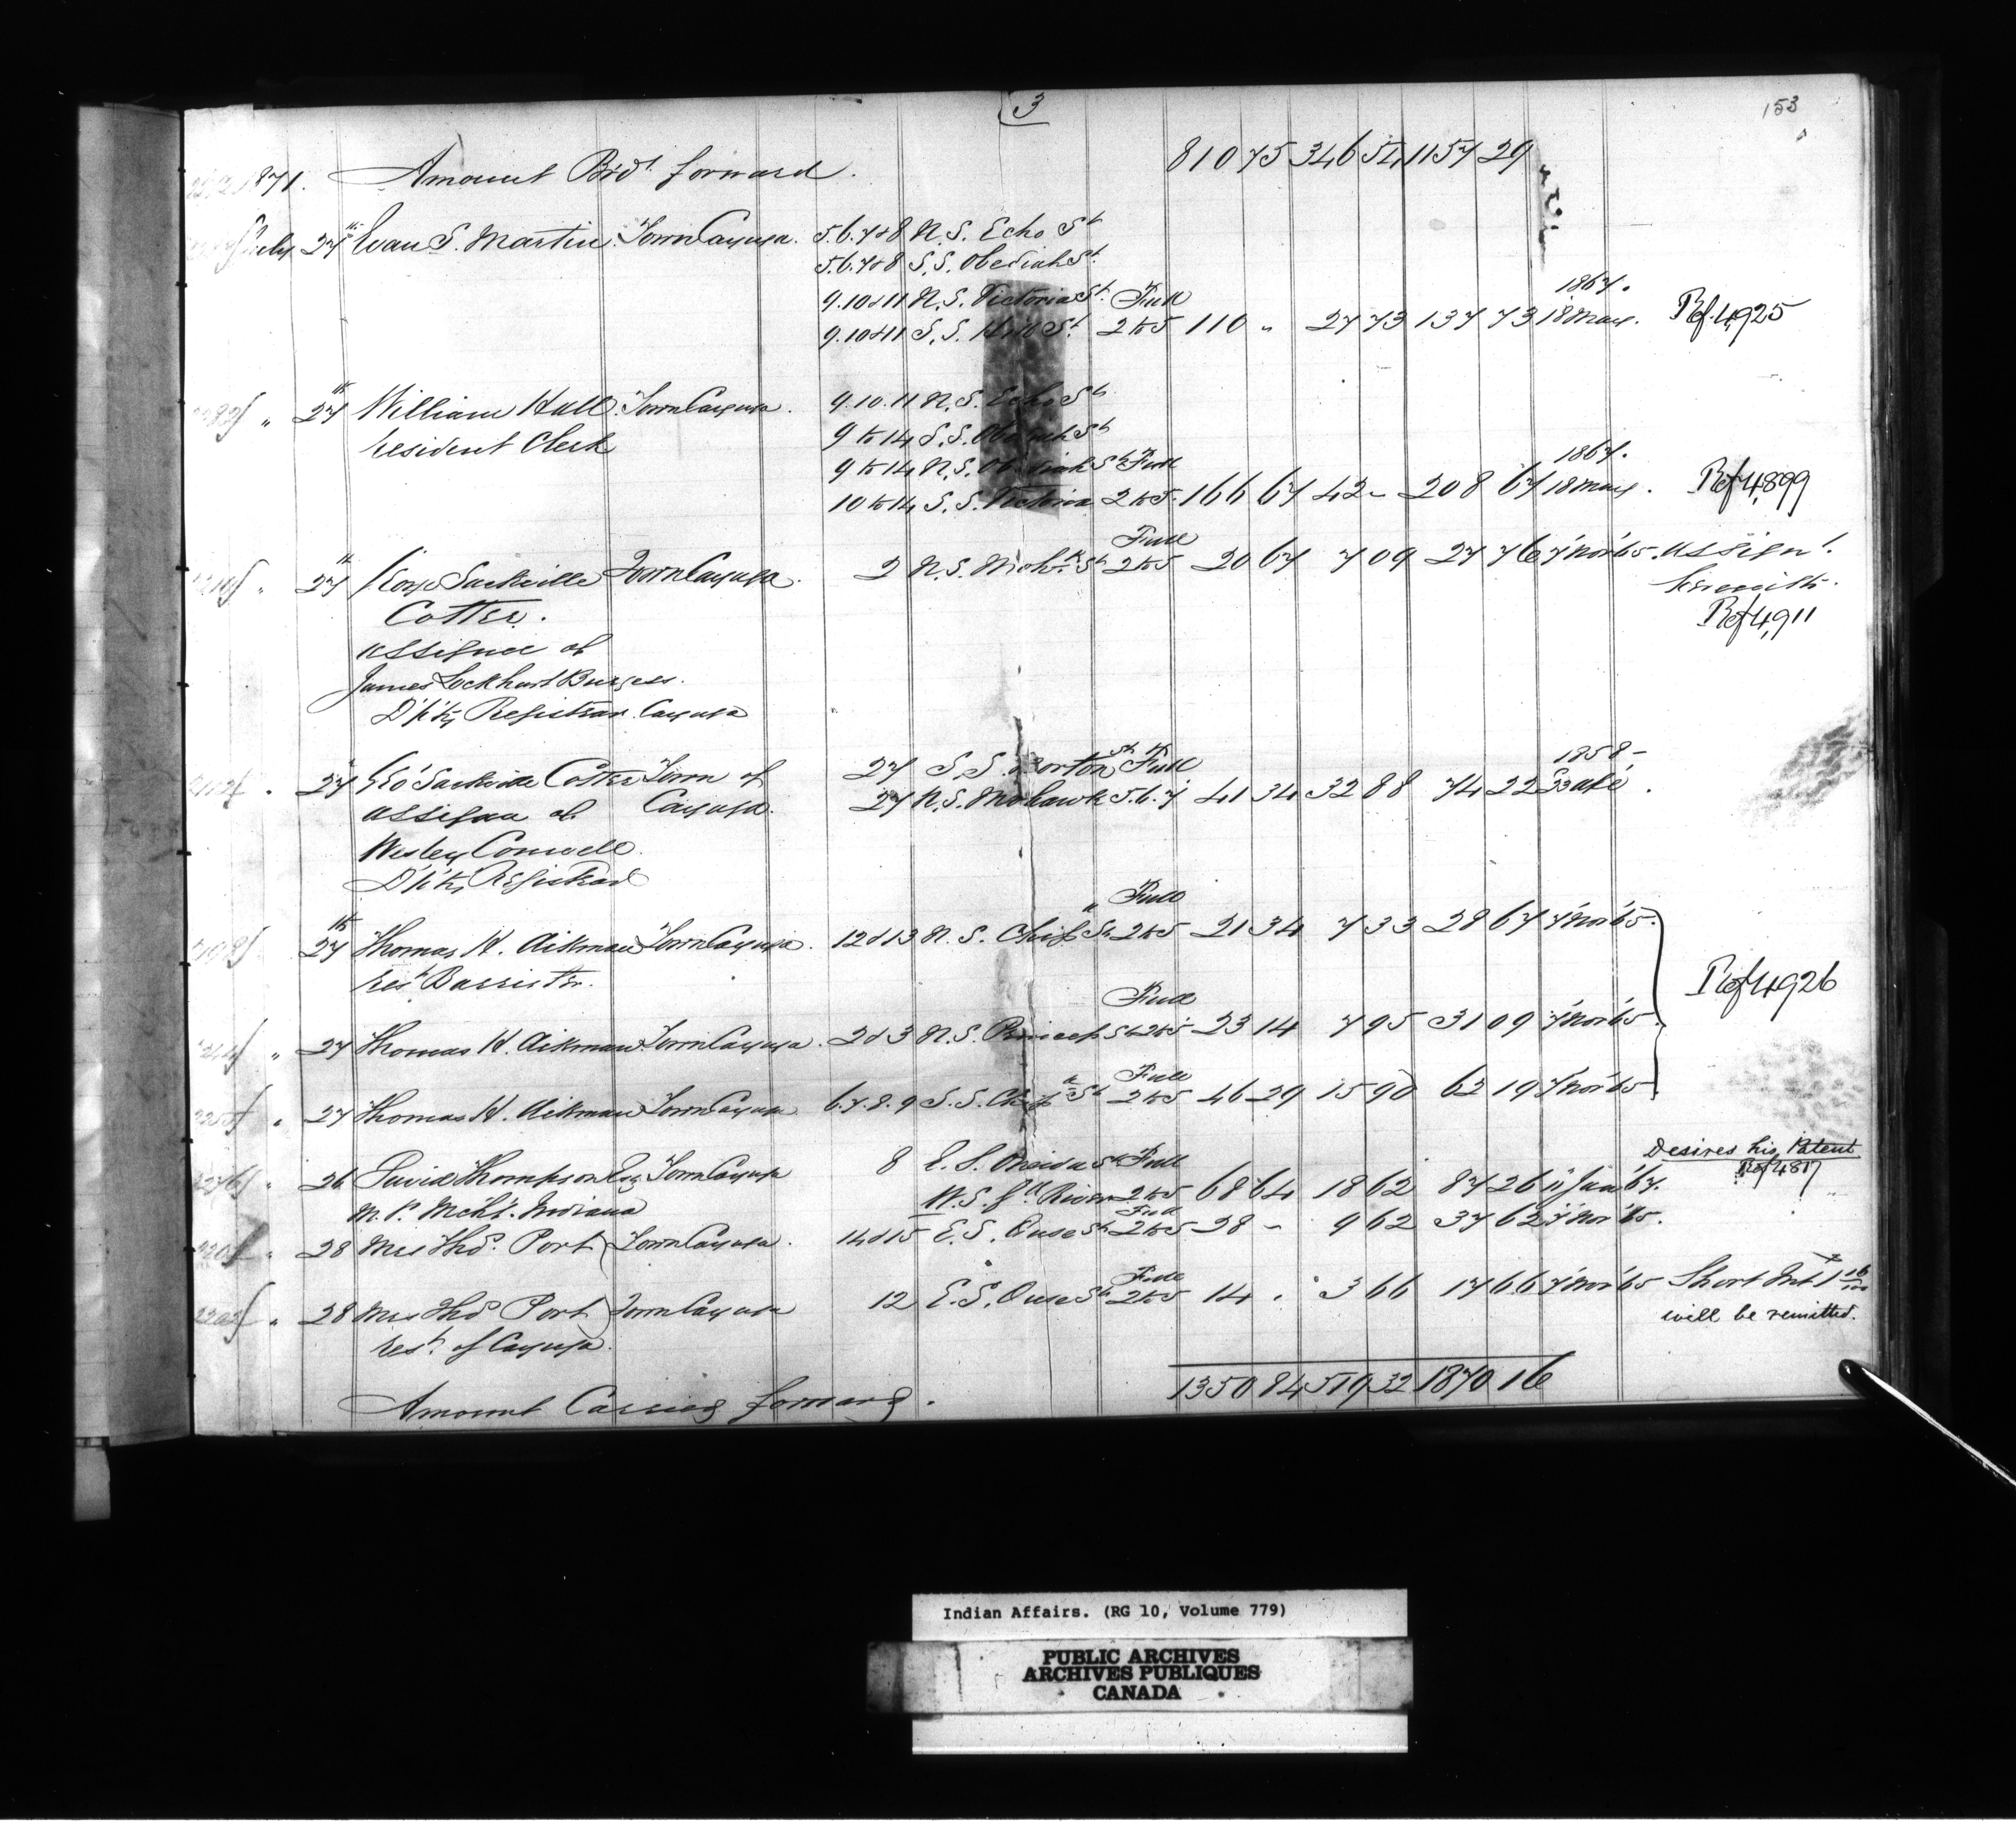 3
153
1871. Amount Brot. forward. 810 75 346 54 1157 29
July 27th Evan S. Martin Town Cayuga. 5.6.7&8 N.S. Echo St
5.6.7&8 S.S. Obediah St.
9.10&11 N.S. Victoria St. Full 1867.
9.10&11 S.S. St. 2to5 110 " 27 73 137 73 18 May. Ref 4,925
" 27th William Hull Town Cayuga. 9.10.11 N.S. Echo St
resident Clerk 9 to 14 S.S. Obediah St
9 to 14 N.S. Obediah St Full 1867.
10 to 14 S.S. Victoria 2to5. 166 67 42 - 208 67 18 May. Ref 4,899
Full
" 27th George Sackville Town Cayuga. 2 N.S. Mohk St 2to5 20 67 7 09 27 76 7 Nov '65. Assignt.
Cotter. herewith.
Ref 4,911
assignee of
James Lockhart Burgess.
D'p'ty Registrar Cayuga
" 27 Geo Sackville Cotter Town of 27 S.S. Norton St Full 1858-
assignee of Cayuga. 27 N.S. Mohawk 5.6.7 41 34 32 88 74 22
Wesley Conwell
D'p'ty Registrar
Full
27th Thomas H. Aikman Town Cayuga. 12&13 N.S. Chief St 2to5 21 34 7 33 28 67 7 Nov '65.
rest Barrister.
Ref 4,926
Full
" 27 Thomas H. Aikman Town Cayuga. 2&3 N.S. Princess St 2to5 23 14 7 95 31 09 7 Nov '65.
Full
" 27 Thomas H. Aikman Town Cayuga 6.7.8.9 S.S. Chief St 2to5 46 29 15 90 62 19 7 Nov '65
Desires his Patent
" 26 David Thompson Esq Town Cayuga 8 E.S. Oneida St Full Ref 4817
M.P. Mcht. Indiana W.S. Gd River 2to5 68 64 18 62 87 26 11 Jan '67.
Full
" 28 Mrs Thos. Port Town Cayuga. 14&15 E.S. Ouse St 2to5 28 - 9 62 37 62 7 Nov '65.
Full
" 28 Mrs Thos Port Town Cayuga 12 E.S. Ouse St 2to5 14 . 3 66 17 66 7 Nov '65 Short Int
rest. of Cayuga. will be remitted.
Amount Carried forward. 1350 84 519 32 1870 16
Indian Affairs. (RG 10, Volume 779)
PUBLIC ARCHIVES
ARCHIVES PUBLIQUES
CANADA